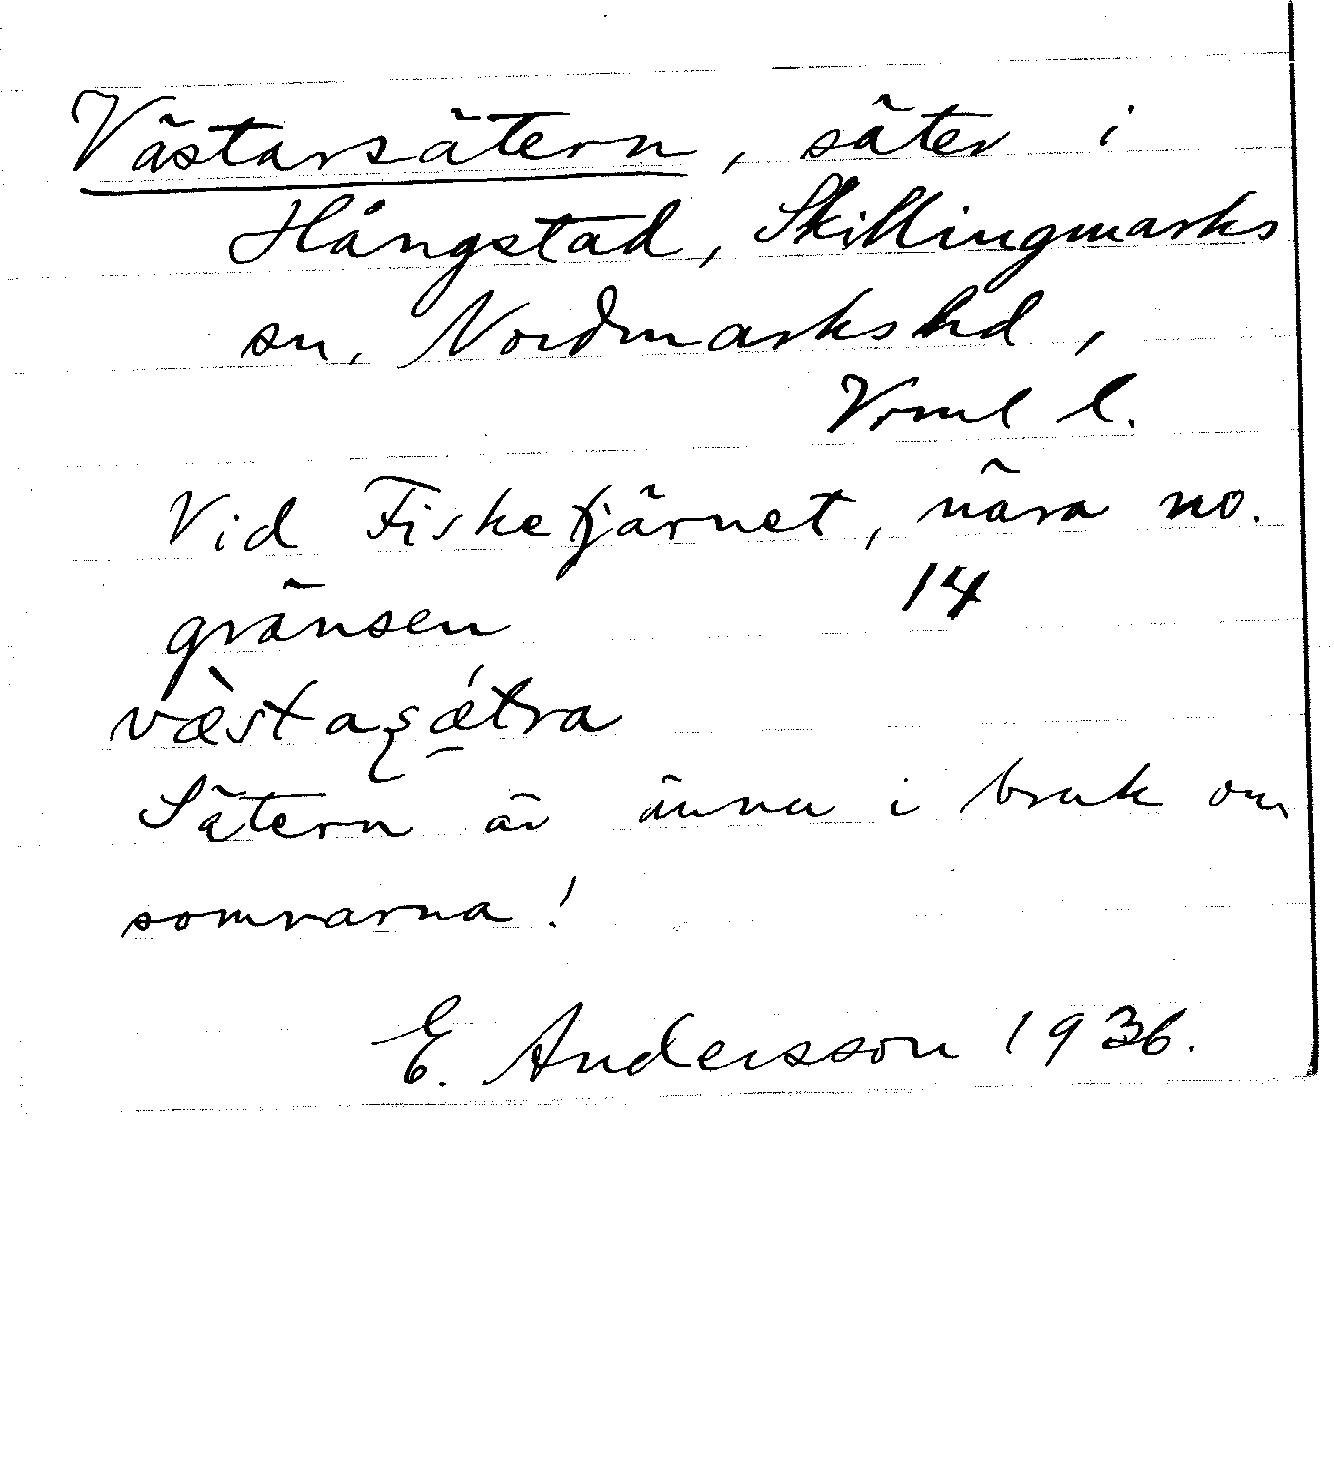 Västarsätern, säter i
Hångstad, Skillingmarks
sn, Nordmarks hd,
Vrml l.
Vid Fisketjärnet, nära no.
gränsen 14
væ̀stasǽtra
Sätern är ännu i bruk om
somrarna!
E. Andersson 1936.